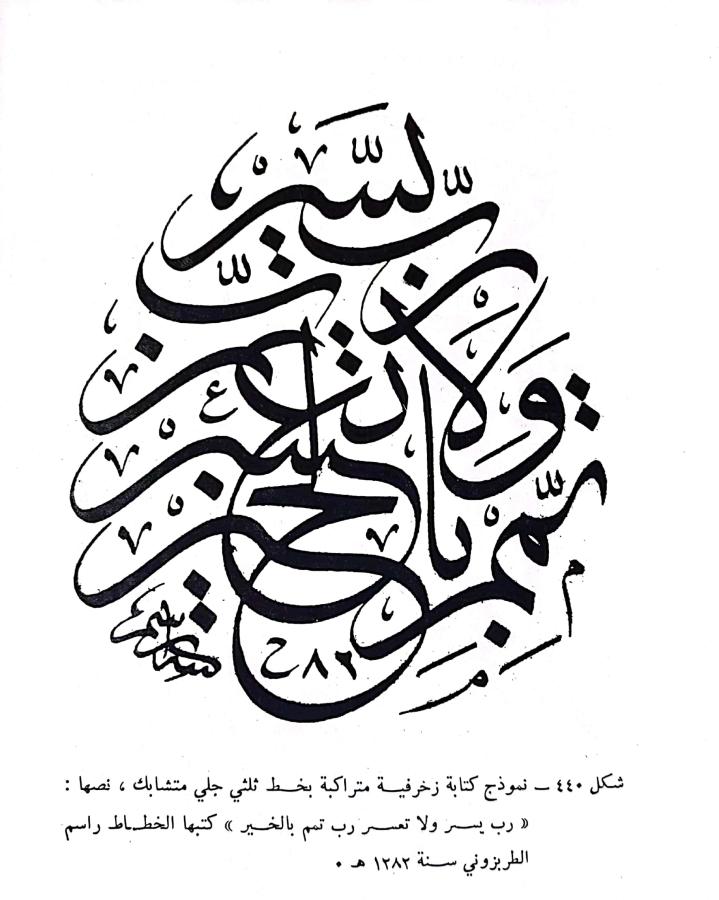 رَبِّ يَسِّرْ وَلَا تُعَسِّرْ رَبِّ تَمِّمْ بِالْخَيْرِ
٨٢
شكل ٤٤٠ ــ نموذج كتابة زخرفيــة متراكبة بخــط ثلثي جلي متشابك ، نصها :
« رب يســر ولا تعســر رب تمم بالخــير » كتبها الخطــاط راسم
الطربزوني سـنة ١٢٨٢ هـ .